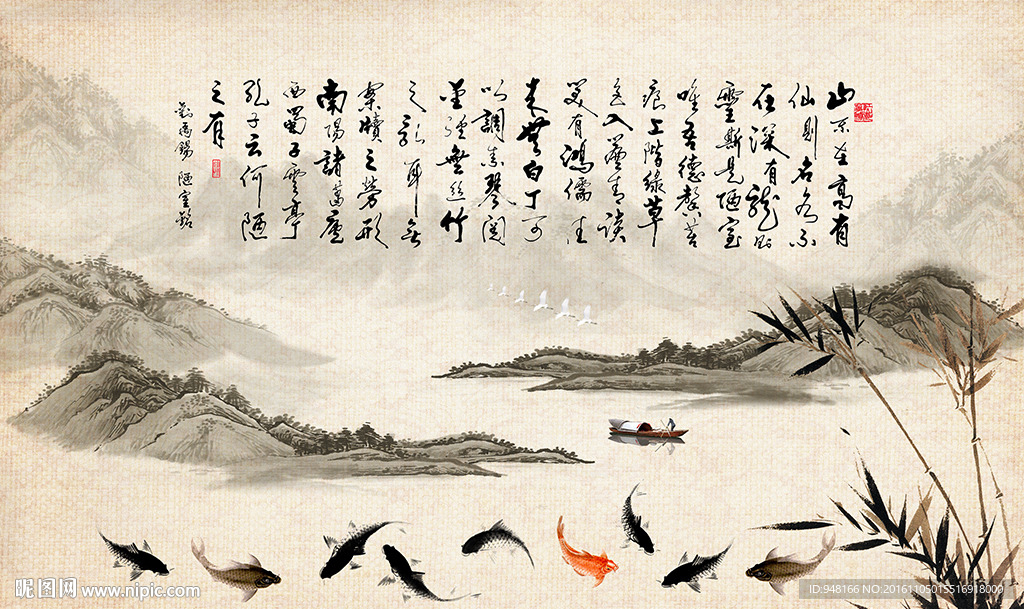 山不在高有
仙則名水不
在深有龍則
靈斯是陋室
唯吾德馨苔
痕上階綠草
色入簾青談
笑有鴻儒往
来無白丁可
以調素琴閱
金經無絲竹
之亂耳無
案牘之勞形
南陽諸葛廬
西蜀子雲亭
孔子云何陋
之有
劉禹錫 陋室銘
昵图网 www.nipic.com
ID:948166 NO:20161105015516918000